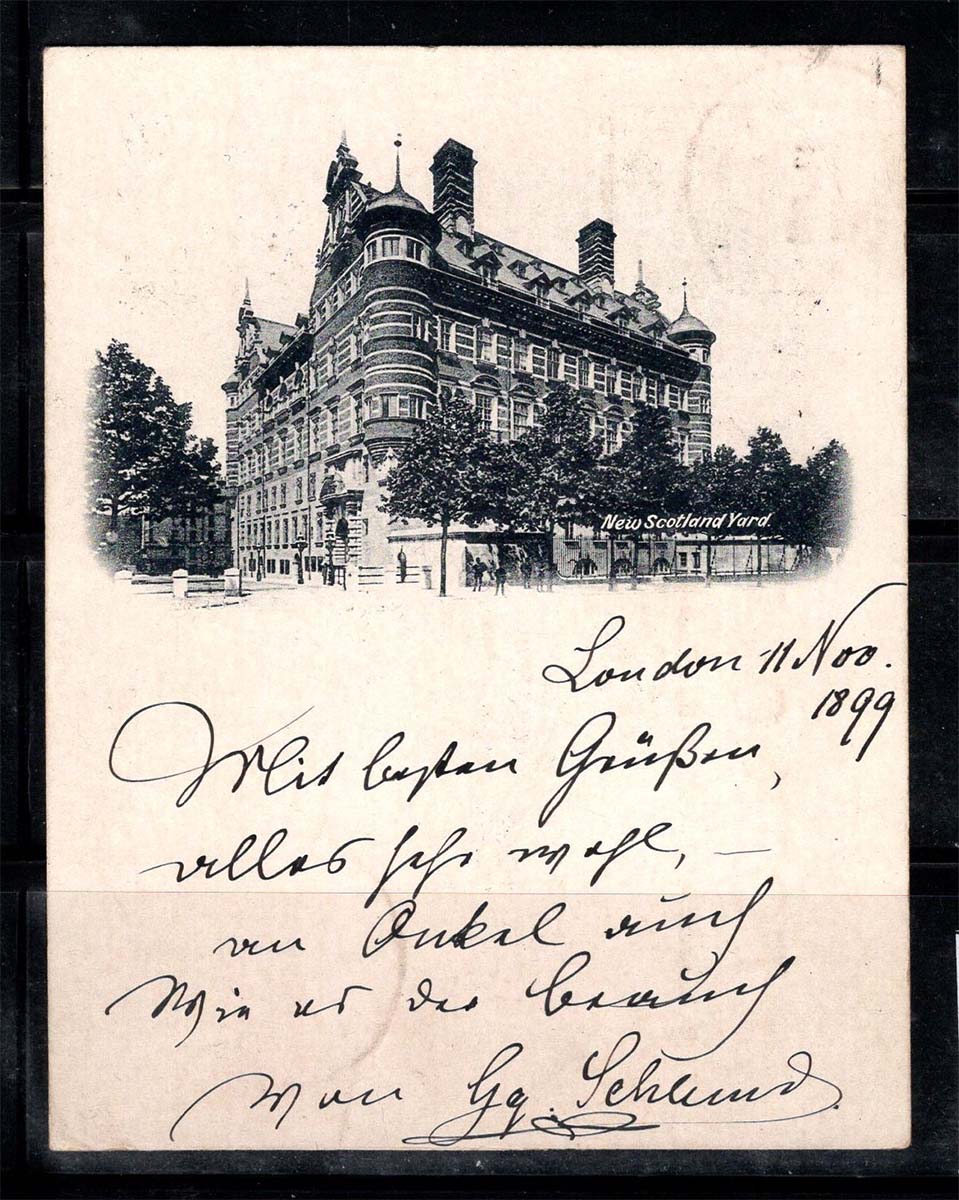 New Scotland Yard.
London 11 Nov.
1899
Mit besten Grüßen,
alles sehr wohl, —
an Onkel auch
Wie es der brauch
von Gg. Schlund.